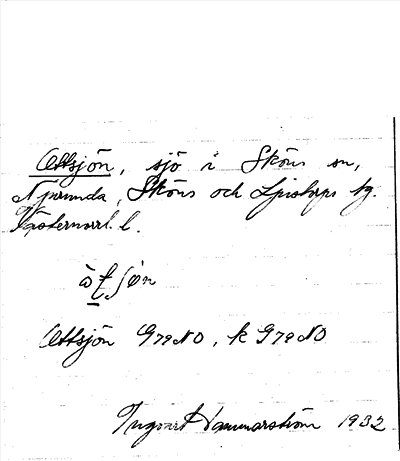 Ottsjön, sjö i Sköns sn,
Njurunda, Sköns och Ljustorps tg.
Västernorrl. l.
Ottsjön G79NO, k G79NO
Ingvar Hammarström 1932